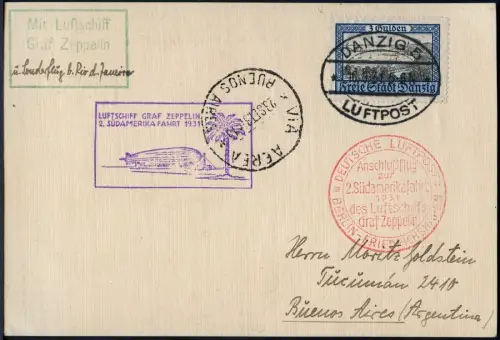 Mit Luftschiff
Graf Zeppelin
u. Sonderflug b. Rio d. Janeiro
3 Gulden
Freie Stadt Danzig
DANZIG 5
LUFTPOST
LUFTSCHIFF GRAF ZEPPELIN
2. SÜDAMERIKAFAHRT 1931
VIA AEREA
BUENOS AIRES
DEUTSCHE LUFTPOST
Anschlußflug
zur
2. Südamerikafahrt
1931
des Luftschiffs
Graf Zeppelin
BERLIN-FRIEDRICHSHAFEN
Herrn Moritz Goldstein
Tucumán 2410
Buenos Aires (Argentina)